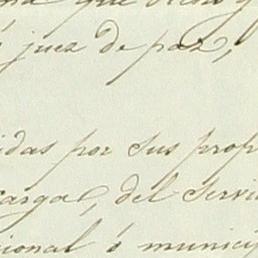 que
juez de paz,
idas por sus prop
carga, del servi
cional ó munici